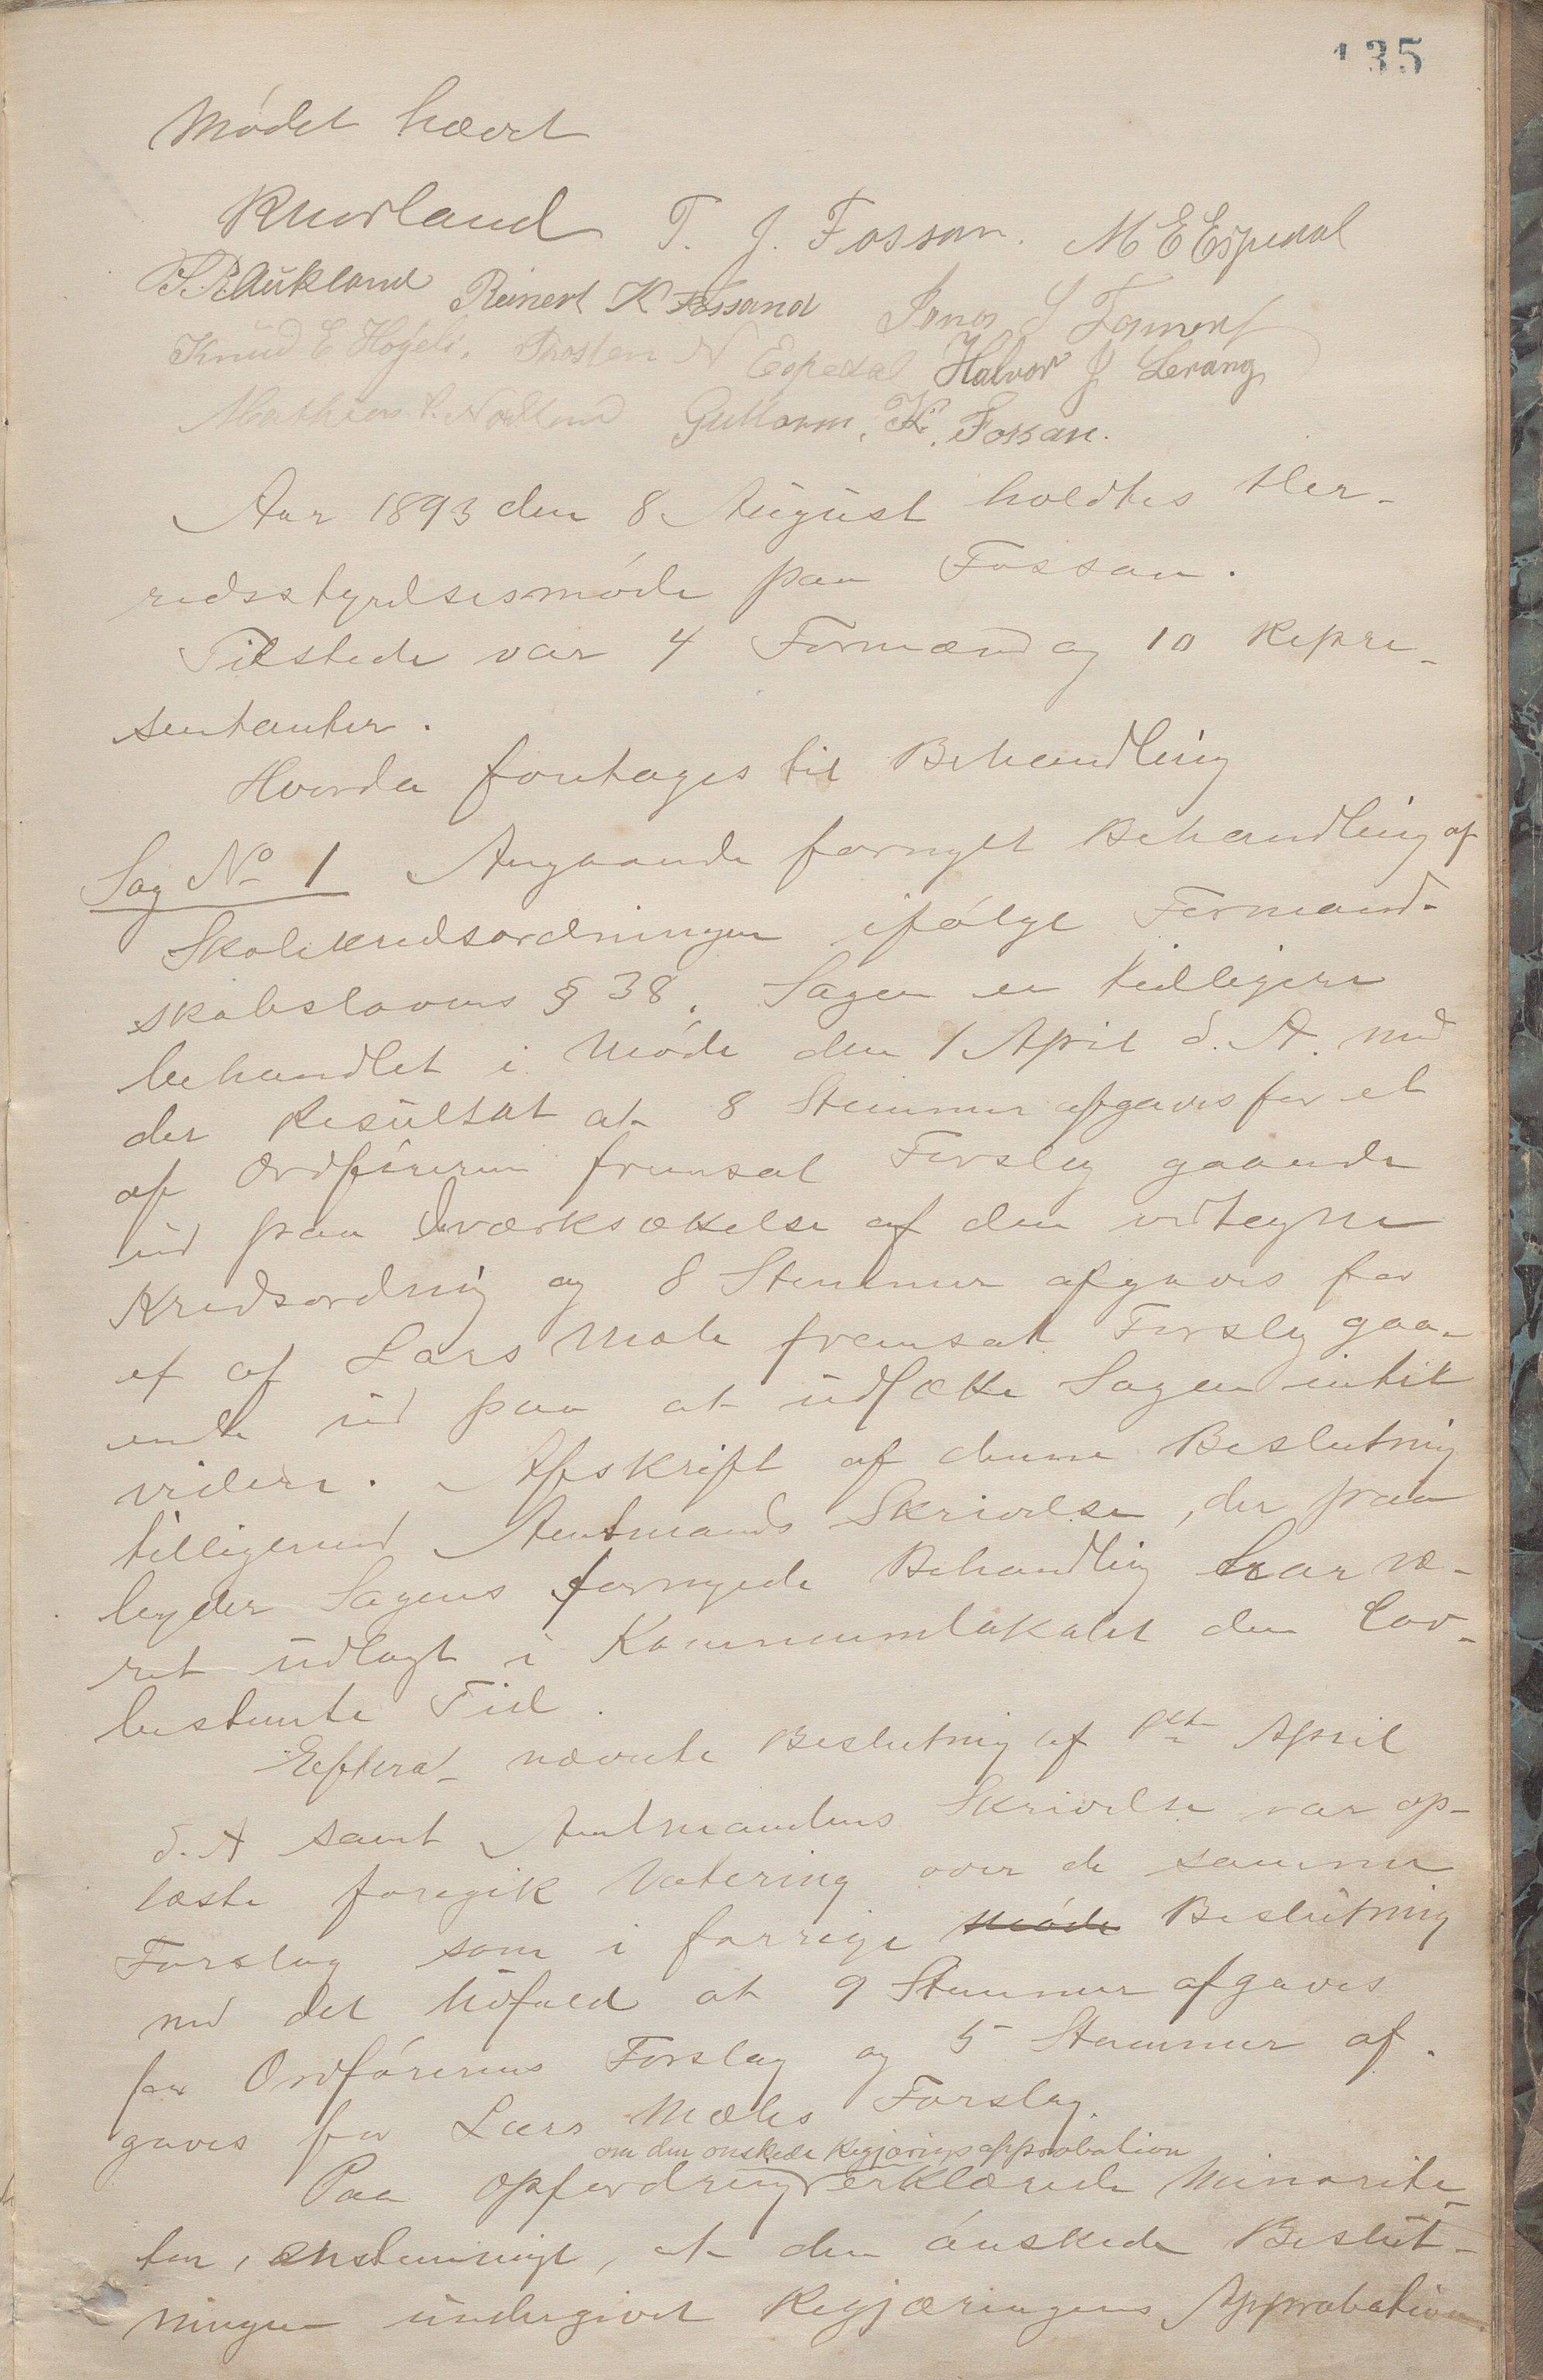 135
Mødet hævet
T. J. Fossan. M E Espedal
Reinert K Fossand Jonas S
Knud E Høgeli. Thosten N Espedal Halvor J Lerang
Mathias Guttorm. K. Fossan.
Aar 1893 den 8 August holdtes Her-
redsstyrelsesmøde paa Fossan.
Tilstede var 4 Formænd og 10 Repre-
sentanter.
Hvorda foretages til Behandling
Sag No 1 Angaaende fornyet Behandling af
Skolekredsordningen ifølge Formand-
skabslovens § 38. Sagen er tidligere
behandlet i Møde den 1 April d. A. med
det Resultat at 8 Stemmer afgaves for et
af Ordføreren fremsat Forslag gaaende
ud paa Iværksættelse af den vedtagne
Kredsordning og 8 Stemmer afgaves for
et af Lars Mæle fremsat Forslag gaa-
ende ud paa at udsætte Sagen intil
videre. Afskrift af denne Beslutning
tilligemed Amtmands Skrivelse, der paa
byder Sagens fornyede Behandling har væ-
ret udlagt i Kommunelokalet den lov-
bestemte Tid.
Efterat nævnte Beslutning af 1ste April
d. A samt Amtmandens Skrivelse var op-
læste foregik Votering over de samme
Forslag som i forrige Møde Beslutning
med det Udfald at 9 Stemmer afgaves
for Ordførerens Forslag og 5 Stemmer af-
gaves for Lars Mæles Forslag.
om den ønskede Regjeringsapprobation
Paa Opfordring erklærede Minorite-
ten, enstemmigt, at den ønskede Beslut-
ningen undergivet Regjæringens Approbation